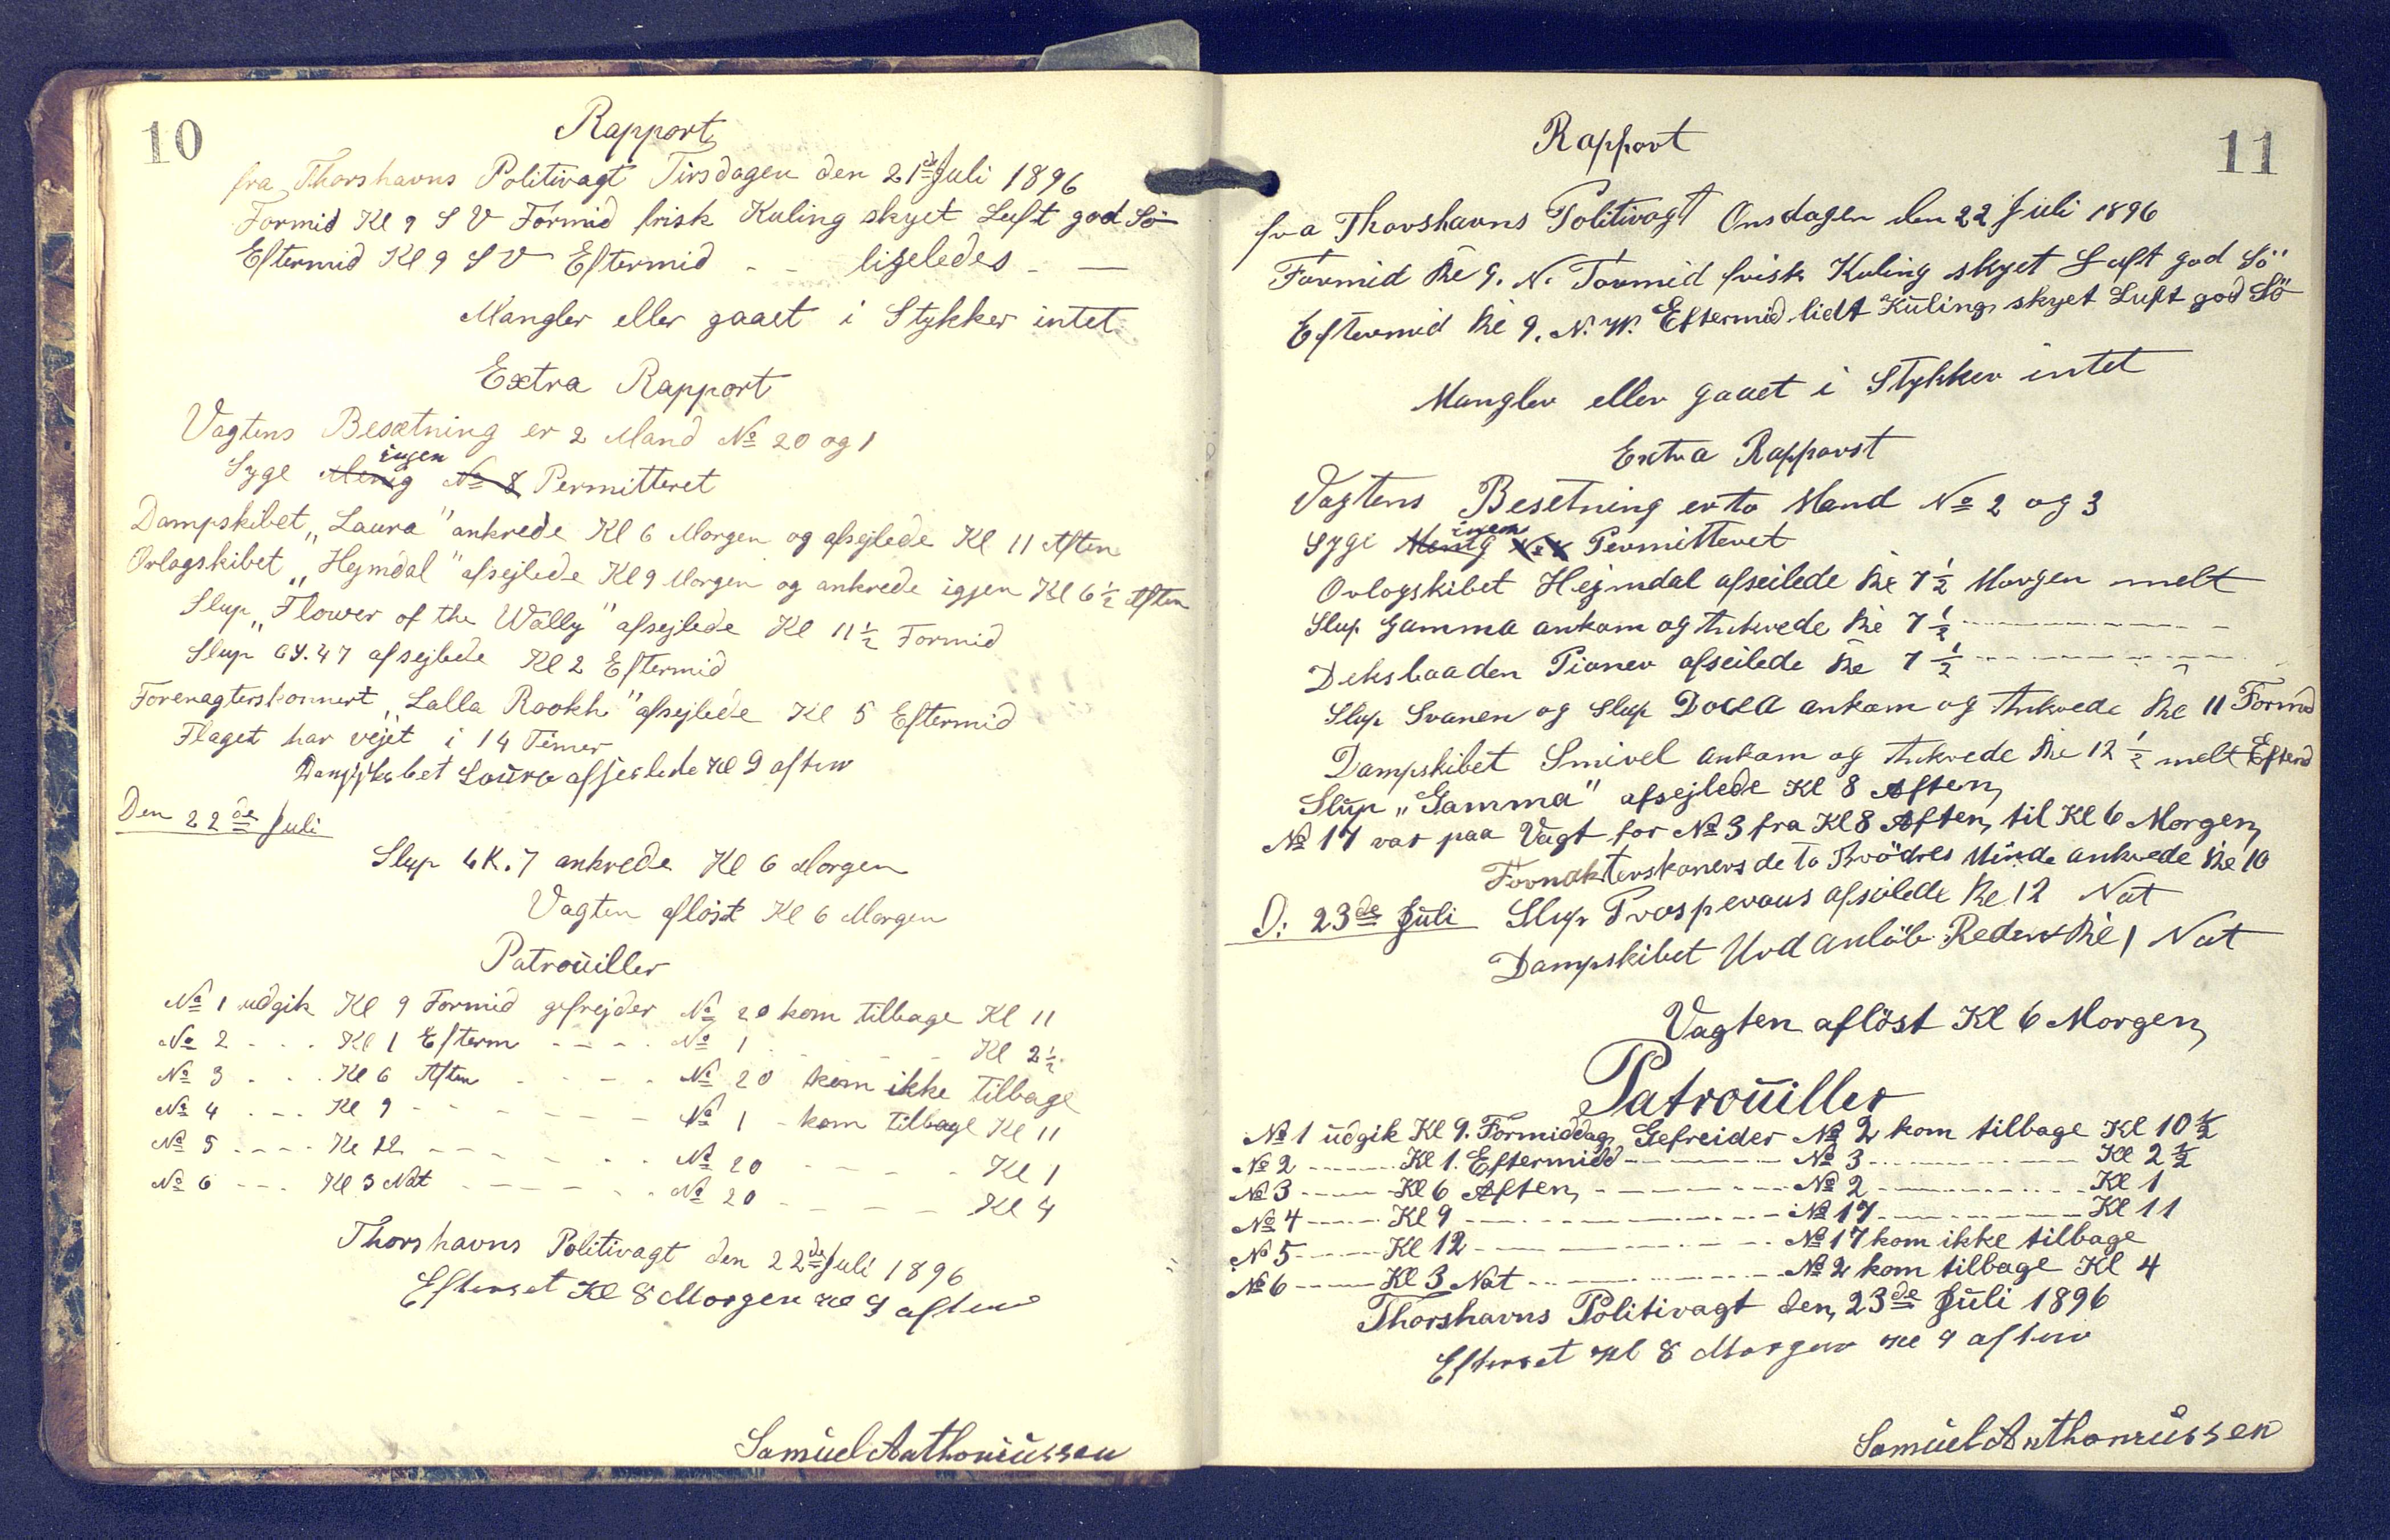 10
Rapport
fra Thorshavns Politivagt Tirsdagen den 21de Juli 1896
Formid Kl 9 S V Formid frisk Kuling skyet Luft god Sö
Eftermid Kl 9 S V Eftermid - - ligeledes - —
Mangler eller gaaet i Stykker intet
Extra Rapport
Vagtens Besætning er 2 Mand No 20 og 1
ingen
Syge Menig No 8 Permitteret
Dampskibet „Laura" ankrede Kl 6 Morgen og afsejlede Kl 11 Aften
Orlogskibet „Hejmdal" afsejlede Kl 9 Morgen og ankrede igjen Kl 6 ½ Aften
Slup „Flower of the Wally" afsejlede Kl 11 ½ Formid
Slup GY.47 afsejlede Kl 2 Eftermid
Forenagterskonnert „Lalla Rookh" afsejlede Kl 5 Eftermid
Flaget har vejet i 14 Timer
Dampskibet Laura afsejlede Kl 9 aften
Den 22de Juli
Slup LK.7 ankrede Kl 6 Morgen
Vagten aflöst Kl 6 Morgen
Patrouiller
No 1 udgik Kl 9 Formid gefrejder No 20 kom tilbage Kl 11
No 2 - - - Kl 1 Efterm - - - - No 1 - - - Kl 2 ½
No 3 - - - Kl 6 Aften - - - - No 20 kom ikke tilbage
No 4 - - - Kl 9 - - - - - - No 1 - kom tilbage Kl 11
No 5 - - - - Kl 12 - - - - - - No 20 - - - - Kl 1
No 6 - - - Kl 3 Nat - - - - - No 20 - - - - Kl 4
Thorshavns Politivagt den 22de Juli 1896
Efterset Kl 8 Morgen Kl 9 aften
Samuel Anthoniussen
11
Rapport
fra Thorshavns Politivagt Onsdagen den 22 Juli 1896
Formid Kl 9. N. Formid frisk Kuling skyet Luft god Sö
Eftermid Kl 9. N. W. Eftermid lidt Kuling skyet Luft god Sö
Mangler eller gaaet i Stykker intet
Extra Rapporst
Vagtens Besetning er to Mand No 2 og 3
ingen
Syge Menig No 8 Permitteret
Orlogskibet Hejmdal afseilede Kl 7 ½ Morgen melt
Slup Gamma ankom og Ankrede Kl 7 ½ - - - - - -
Deksbaaden Pioner afseilede Kl 7 ½ - - - - - -
Slup Svanen og Slup Docea ankom og Ankrede Kl 11 Formd
Dampskibet Smivel ankom og Ankrede Kl 12 ½ melt Efterd
Slup „Gamma" afsejlede Kl 8 Aften,
No 17 var paa Vagt for No 3 fra Kl 8 Aften, til Kl 6 Morgen,
Fornakterskoners de to Brödres Minde ankrede Kl 10
D: 23de Juli Slup Prosperous afseilede Kl 12 Nat
Dampskibet Urd anlöb Reden Kl 1 Nat
Vagten aflöst Kl 6 Morgen,
Patrouiller
No 1 udgik Kl 9. Formiddag, Gefreider No 2 kom tilbage Kl 10 ½
No 2 - - - - Kl 1. Eftermidd - - - - No 3 - - - - Kl 2 ½
No 3 - - - - Kl 6 Aften, - - - - No 2 - - - - Kl 1
No 4 - - - - Kl 9 - - - - No 17 - - - - Kl 11
No 5 - - - - Kl 12 - - - - No 17 kom ikke tilbage
No 6 - - - - Kl 3 Nat - - - - No 2 kom tilbage Kl 4
Thorshavns Politivagt den, 23de Juli 1896
Efterset Kl 8 Morgen Kl 9 aften
Samuel Anthoniussen